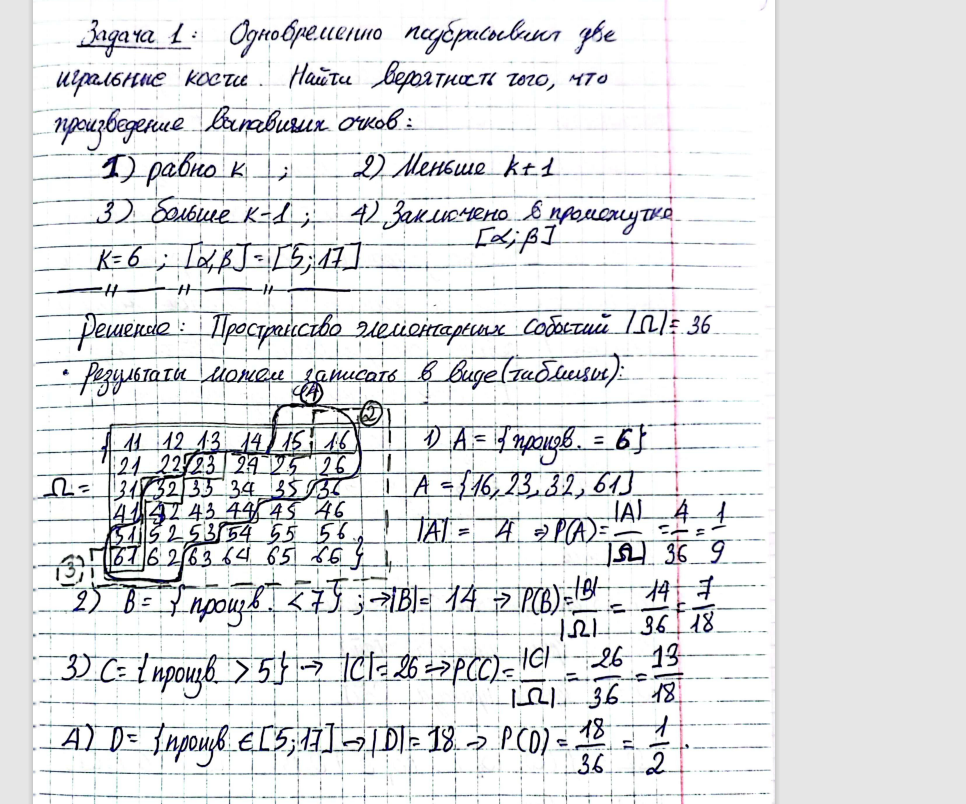 Задача 1: Одновременно подбрасывают две
игральные кости. Найти вероятность того, что
произведение выпавших очков:
1) равно к ; 2) Меньше k+1
3) больше к-1 ; 4) Заключено в промежутке
[α;β]
K=6 ; [α,β] = [5;17]
Решение: Пространство элементарных событий |Ω|= 36
• Результаты можем записать в виде(таблицы):
4 2
{ 11 12 13 14 15 16 1) A = {произв. = 6}
21 22 23 24 25 26
Ω = 31 32 33 34 35 36 A = {16, 23, 32, 61}
41 42 43 44 45 46
51 52 53 54 55 56 |A| = 4 ⇒ P(A)= |A|/|Ω| = 4/36 = 1/9
61 62 63 64 65 66 }
3
2) B = { произв. < 7} ; → |B| = 14 → P(B)= |B|/|Ω| = 14/36 = 7/18
3) C= {произв. > 5} → |C|=26 ⇒ P(C)= |C|/|Ω| = 26/36 = 13/18
4) D= {произв ∈ [5;17] → |D|= 18 → P(D) = 18/36 = 1/2 .